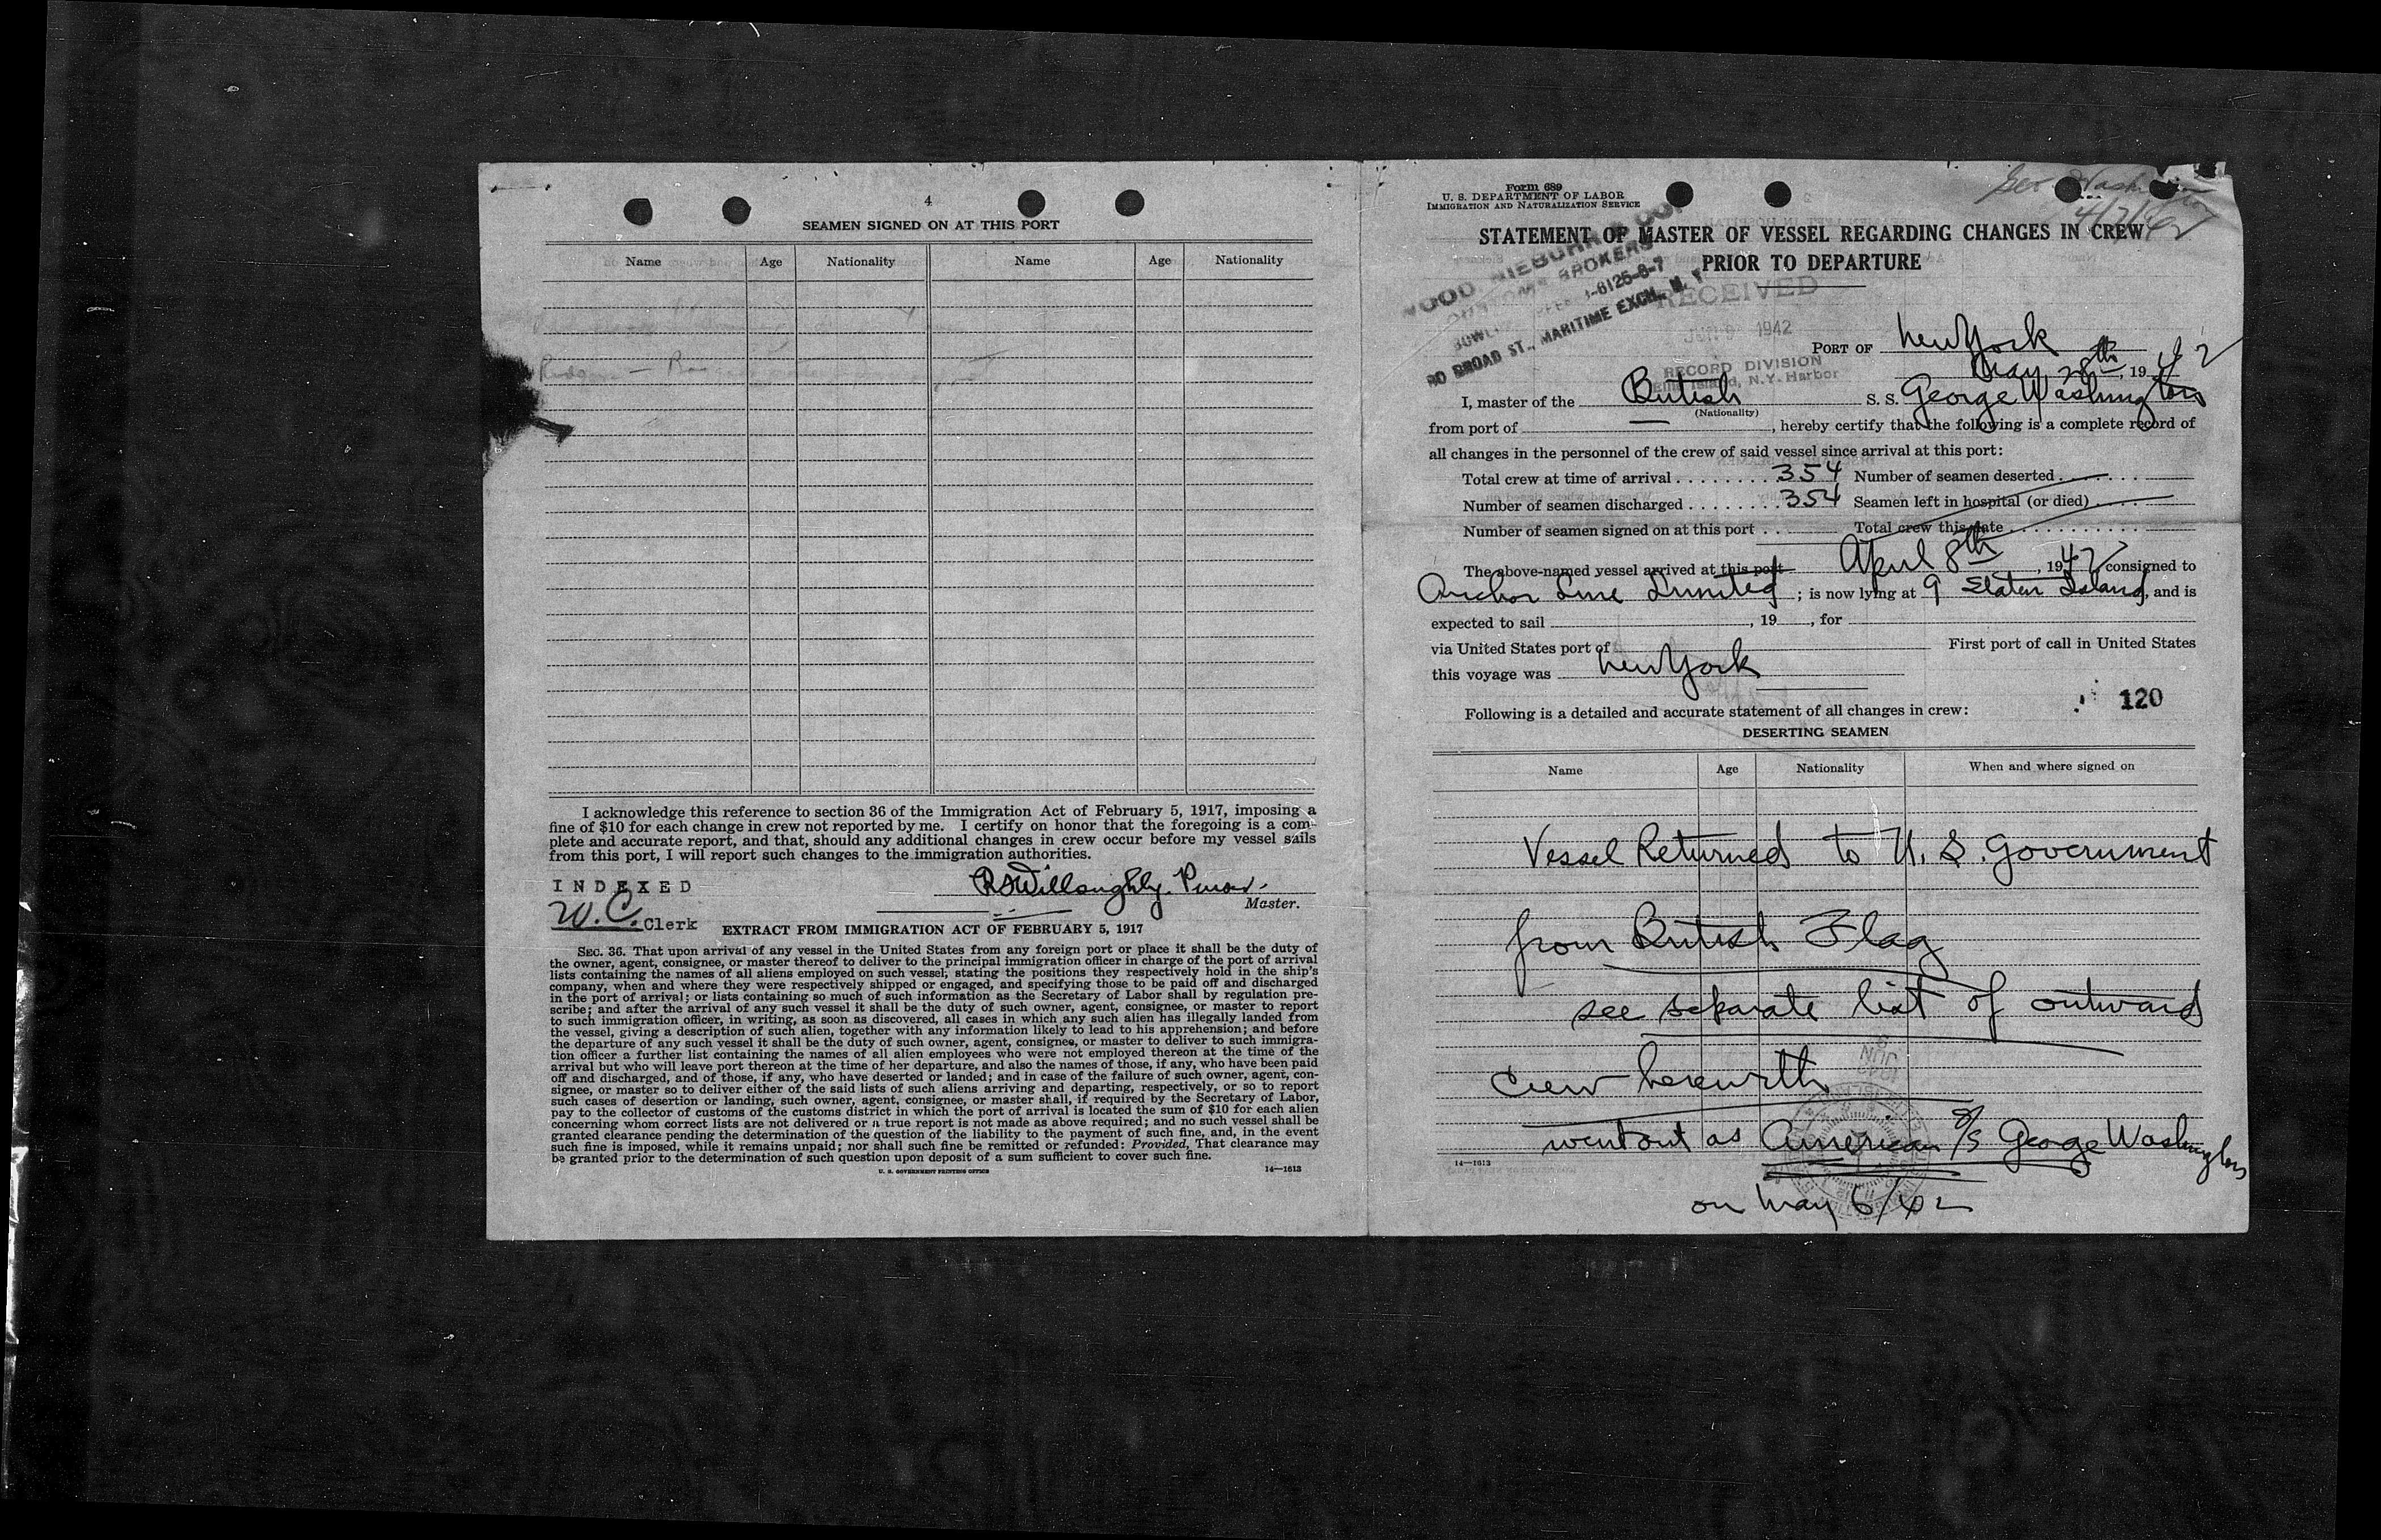 4
SEAMEN SIGNED ON AT THIS PORT
Name Age Nationality Name Age Nationality
I acknowledge this reference to section 36 of the Immigration Act of February 5, 1917, imposing a
fine of $10 for each change in crew not reported by me. I certify on honor that the foregoing is a com-
plete and accurate report, and that, should any additional changes in crew occur before my vessel sails
from this port, I will report such changes to the immigration authorities.
INDEXED
W.C. Clerk
Willoughby
Master.
EXTRACT FROM IMMIGRATION ACT OF FEBRUARY 5, 1917
SEC. 36. That upon arrival of any vessel in the United States from any foreign port or place it shall be the duty of
the owner, agent, consignee, or master thereof to deliver to the principal immigration officer in charge of the port of arrival
lists containing the names of all aliens employed on such vessel, stating the positions they respectively hold in the ship's
company, when and where they were respectively shipped or engaged, and specifying those to be paid off and discharged
in the port of arrival; or lists containing so much of such information as the Secretary of Labor shall by regulation pre-
scribe; and after the arrival of any such vessel it shall be the duty of such owner, agent, consignee, or master to report
to such immigration officer, in writing, as soon as discovered, all cases in which any such alien has illegally landed from
the vessel, giving a description of such alien, together with any information likely to lead to his apprehension; and before
the departure of any such vessel it shall be the duty of such owner, agent, consignee, or master to deliver to such immigra-
tion officer a further list containing the names of all alien employees who were not employed thereon at the time of the
arrival but who will leave port thereon at the time of her departure, and also the names of those, if any, who have been paid
off and discharged, and of those, if any, who have deserted or landed; and in case of the failure of such owner, agent, con-
signee, or master so to deliver either of the said lists of such aliens arriving and departing, respectively, or so to report
such cases of desertion or landing, such owner, agent, consignee, or master shall, if required by the Secretary of Labor,
pay to the collector of customs of the customs district in which the port of arrival is located the sum of $10 for each alien
concerning whom correct lists are not delivered or a true report is not made as above required; and no such vessel shall be
granted clearance pending the determination of the question of the liability to the payment of such fine, and, in the event
such fine is imposed, while it remains unpaid; nor shall such fine be remitted or refunded: Provided, That clearance may
be granted prior to the determination of such question upon deposit of a sum sufficient to cover such fine.
U. S. GOVERNMENT PRINTING OFFICE 14—1613
Form 689
U. S. DEPARTMENT OF LABOR
IMMIGRATION AND NATURALIZATION SERVICE
STATEMENT OF MASTER OF VESSEL REGARDING CHANGES IN CREW
PRIOR TO DEPARTURE
BROKERS
BROAD ST., MARITIME EXCH., N. Y.
RECEIVED
1942
RECORD DIVISION
Island, N.Y. Harbor
PORT OF New York
May 28th, 1942
I, master of the British S. S. George Washington
(Nationality)
from port of , hereby certify that the following is a complete record of
all changes in the personnel of the crew of said vessel since arrival at this port:
Total crew at time of arrival 354 Number of seamen deserted
Number of seamen discharged 354 Seamen left in hospital (or died)
Number of seamen signed on at this port Total crew this date
The above-named vessel arrived at this port April 8th, 1942 consigned to
Anchor Line Limited ; is now lying at 9 Staten Island, and is
expected to sail , 19 , for
via United States port of First port of call in United States
this voyage was New York
120
Following is a detailed and accurate statement of all changes in crew:
DESERTING SEAMEN
Name Age Nationality When and where signed on
Vessel Returned to U. S. Government
from British Flag
see separate list of outward
crew herewith
went out as American S/S George Washington
14—1613
on May 6/42